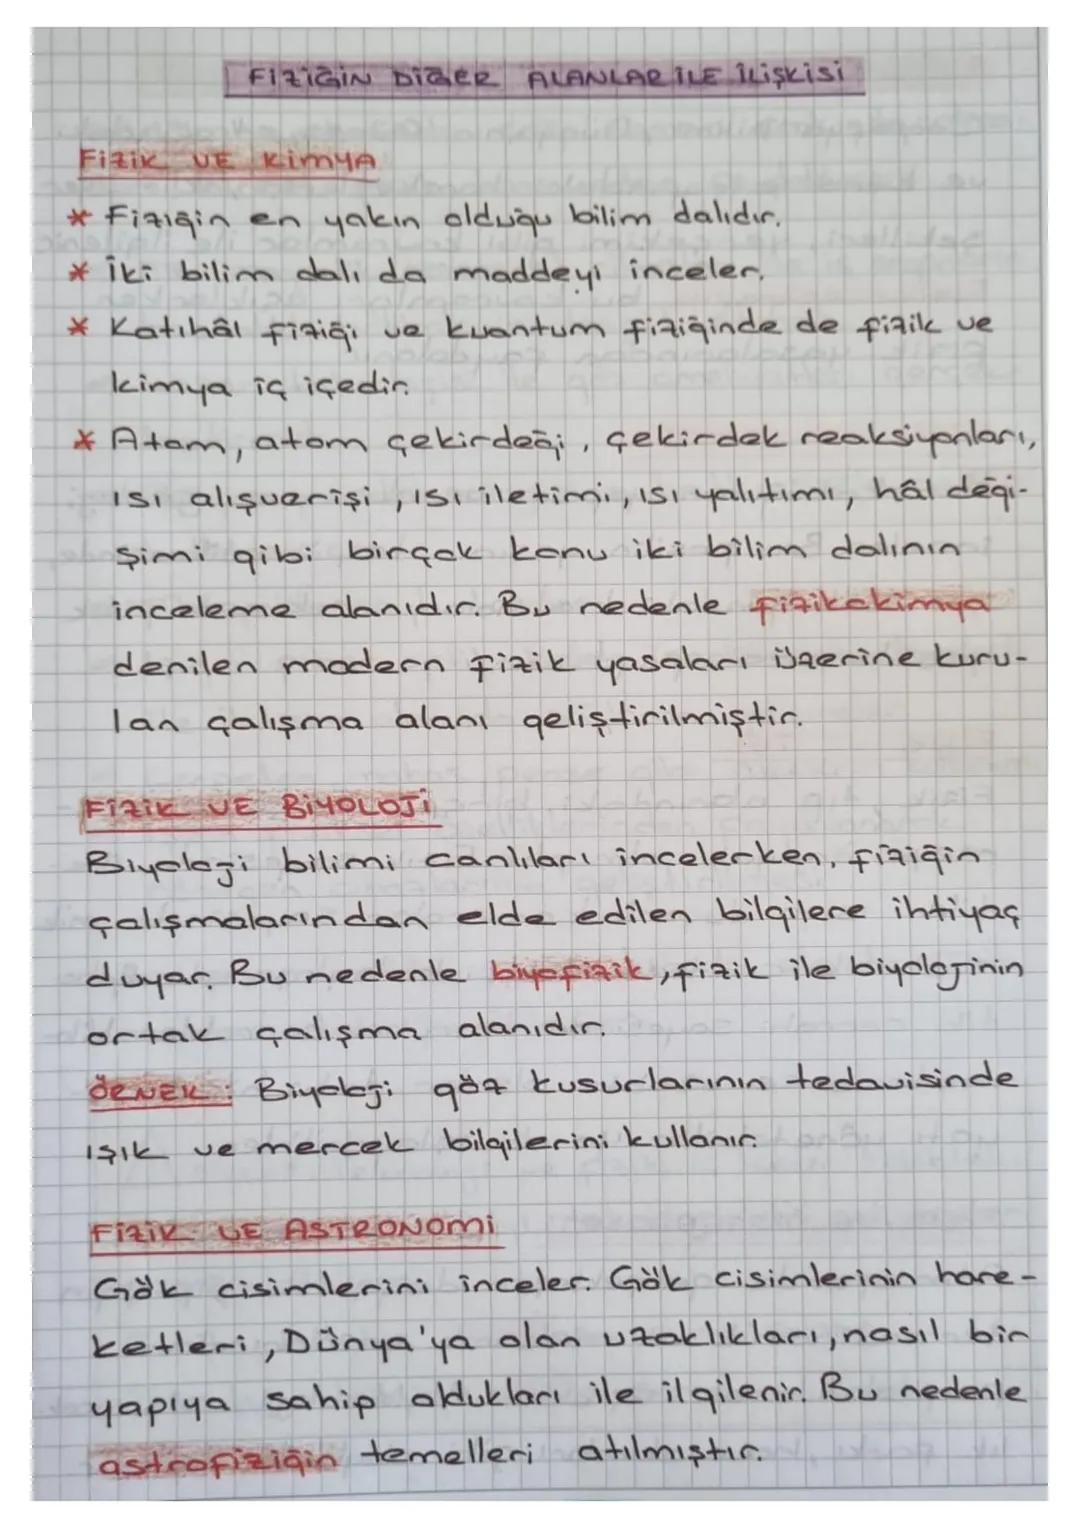 FİZİĞİN DİĞER ALANLAR İLE İLİŞKİSİ
FİZİK VE KİMYA
* Fiziğin en yakın olduğu bilim dalıdır.
* İki bilim dalı da maddeyi inceler.
* Katıhâl fiziği ve kuantum fiziğinde de fizik ve
kimya iç içedir.
* Atom, atom çekirdeği, çekirdek reaksiyonları,
ısı alışverişi, ısı iletimi, ısı yalıtımı, hâl deği-
şimi gibi birçok konu iki bilim dalının
inceleme alanıdır. Bu nedenle fizikokimya
denilen modern fizik yasaları üzerine kuru-
lan çalışma alanı geliştirilmiştir.
FİZİK VE BİYOLOJİ
Biyoloji bilimi canlıları incelerken, fiziğin
çalışmalarından elde edilen bilgilere ihtiyaç
duyar. Bu nedenle biyofizik, fizik ile biyolojinin
ortak çalışma alanıdır.
ÖRNEK: Biyoloji göz kusurlarının tedavisinde
ışık ve mercek bilgilerini kullanır.
FİZİK VE ASTRONOMİ
Gök cisimlerini inceler. Gök cisimlerinin hare-
ketleri, Dünya'ya olan uzaklıkları, nasıl bir
yapıya sahip oldukları ile ilgilenir. Bu nedenle
astrofiziğin temelleri atılmıştır.